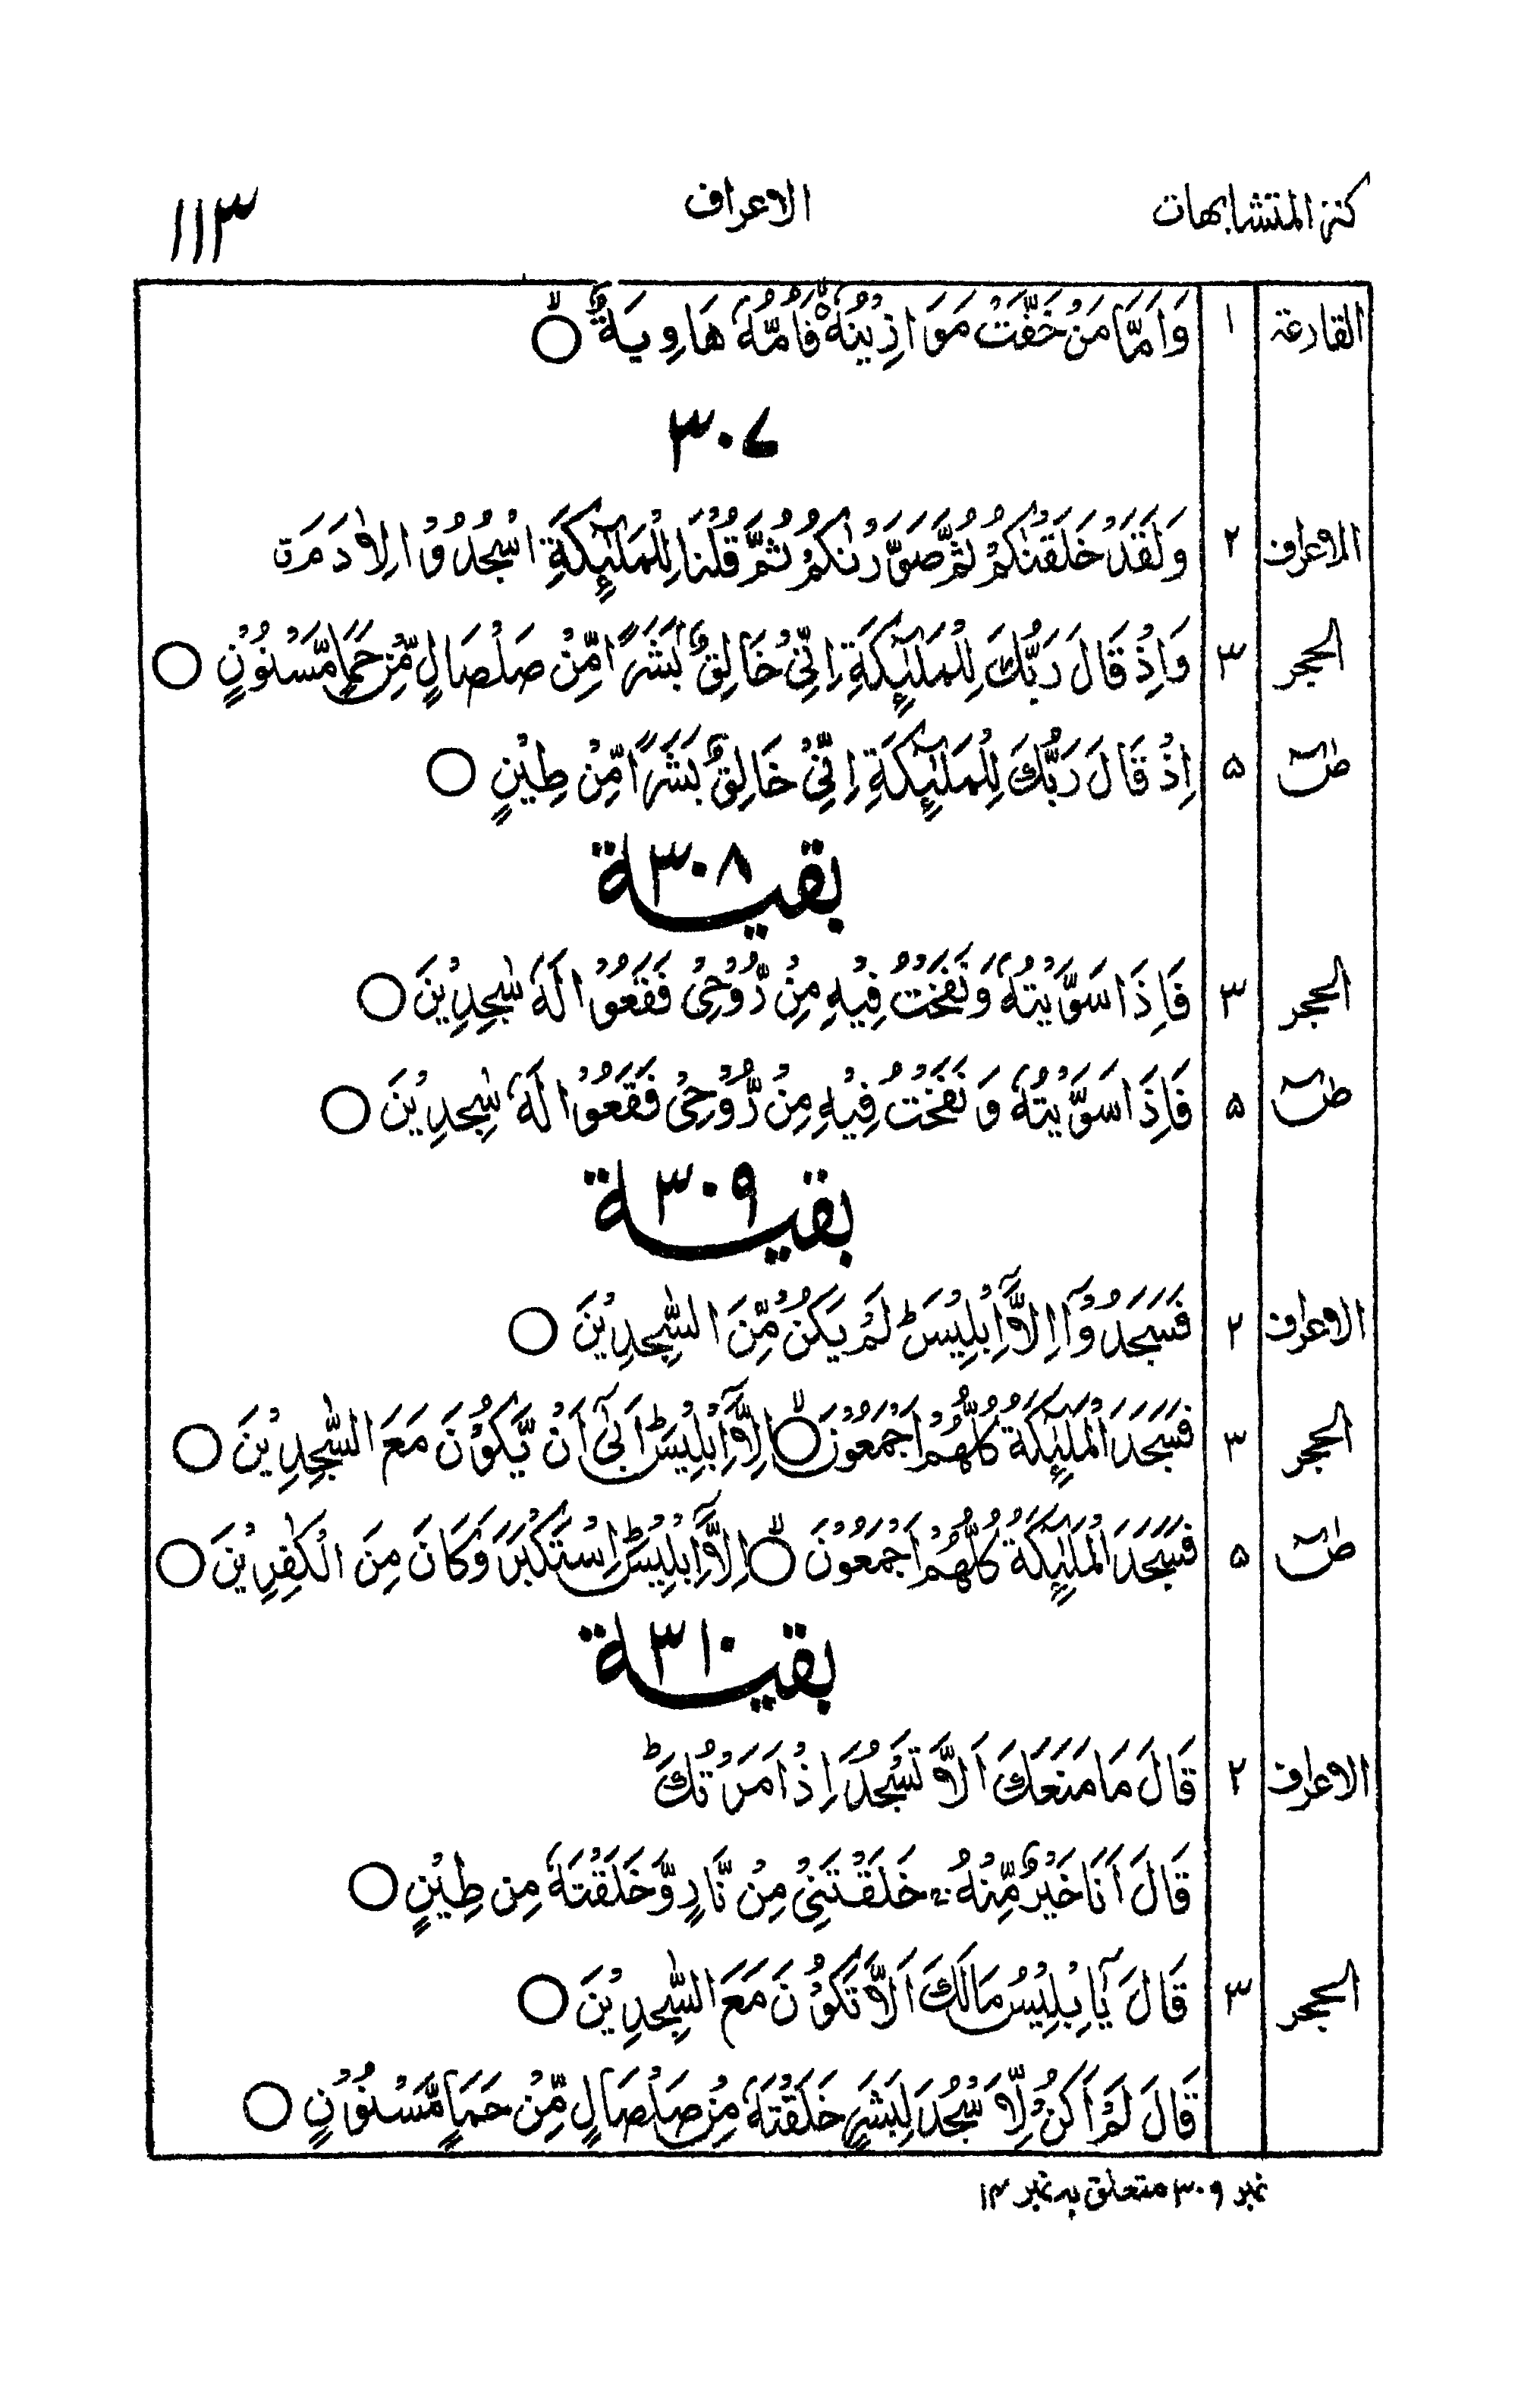 كنز المتشابهات الاعراف ۱۱۳
القارعة ۱ وَاَمَّا مَنْ خَفَّتْ مَوَازِيْنُهٗ فَاُمُّهٗ هَاوِيَةٌ ○
۳۰۷
الاعراف ۲ وَلَقَدْ خَلَقْنٰكُمْ ثُمَّ صَوَّرْنٰكُمْ ثُمَّ قُلْنَا لِلْمَلٰٓئِكَةِ اسْجُدُوْا لِاٰدَمَ
الحجر ۳ وَاِذْ قَالَ رَبُّكَ لِلْمَلٰٓئِكَةِ اِنِّىْ خَالِقٌۢ بَشَرًا مِّنْ صَلْصَالٍ مِّنْ حَمَاٍ مَّسْنُوْنٍ ○
صٓ ۵ اِذْ قَالَ رَبُّكَ لِلْمَلٰٓئِكَةِ اِنِّىْ خَالِقٌۢ بَشَرًا مِّنْ طِيْنٍ ○
بقية ۳۰۸
الحجر ۳ فَاِذَا سَوَّيْتُهٗ وَنَفَخْتُ فِيْهِ مِنْ رُّوْحِىْ فَقَعُوْا لَهٗ سٰجِدِيْنَ ○
صٓ ۵ فَاِذَا سَوَّيْتُهٗ وَنَفَخْتُ فِيْهِ مِنْ رُّوْحِىْ فَقَعُوْا لَهٗ سٰجِدِيْنَ ○
بقية ۳۰۹
الاعراف ۲ فَسَجَدُوْٓا اِلَّآ اِبْلِيْسَ ؕ لَمْ يَكُنْ مِّنَ السّٰجِدِيْنَ ○
الحجر ۳ فَسَجَدَ الْمَلٰٓئِكَةُ كُلُّهُمْ اَجْمَعُوْنَ ○ۙ اِلَّآ اِبْلِيْسَ ؕ اَبٰٓى اَنْ يَّكُوْنَ مَعَ السّٰجِدِيْنَ ○
صٓ ۵ فَسَجَدَ الْمَلٰٓئِكَةُ كُلُّهُمْ اَجْمَعُوْنَ ○ۙ اِلَّآ اِبْلِيْسَ ؕ اِسْتَكْبَرَ وَكَانَ مِنَ الْكٰفِرِيْنَ ○
بقية ۳۱۰
الاعراف ۲ قَالَ مَا مَنَعَكَ اَلَّا تَسْجُدَ اِذْ اَمَرْتُكَ ؕ
قَالَ اَنَا خَيْرٌ مِّنْهُ ۚ خَلَقْتَنِىْ مِنْ نَّارٍ وَّخَلَقْتَهٗ مِنْ طِيْنٍ ○
الحجر ۳ قَالَ يٰٓاِبْلِيْسُ مَا لَكَ اَلَّا تَكُوْنَ مَعَ السّٰجِدِيْنَ ○
قَالَ لَمْ اَكُنْ لِّاَسْجُدَ لِبَشَرٍ خَلَقْتَهٗ مِنْ صَلْصَالٍ مِّنْ حَمَاٍ مَّسْنُوْنٍ ○
نمبر ۳۰۹ متعلق بہ نمبر ۱۴